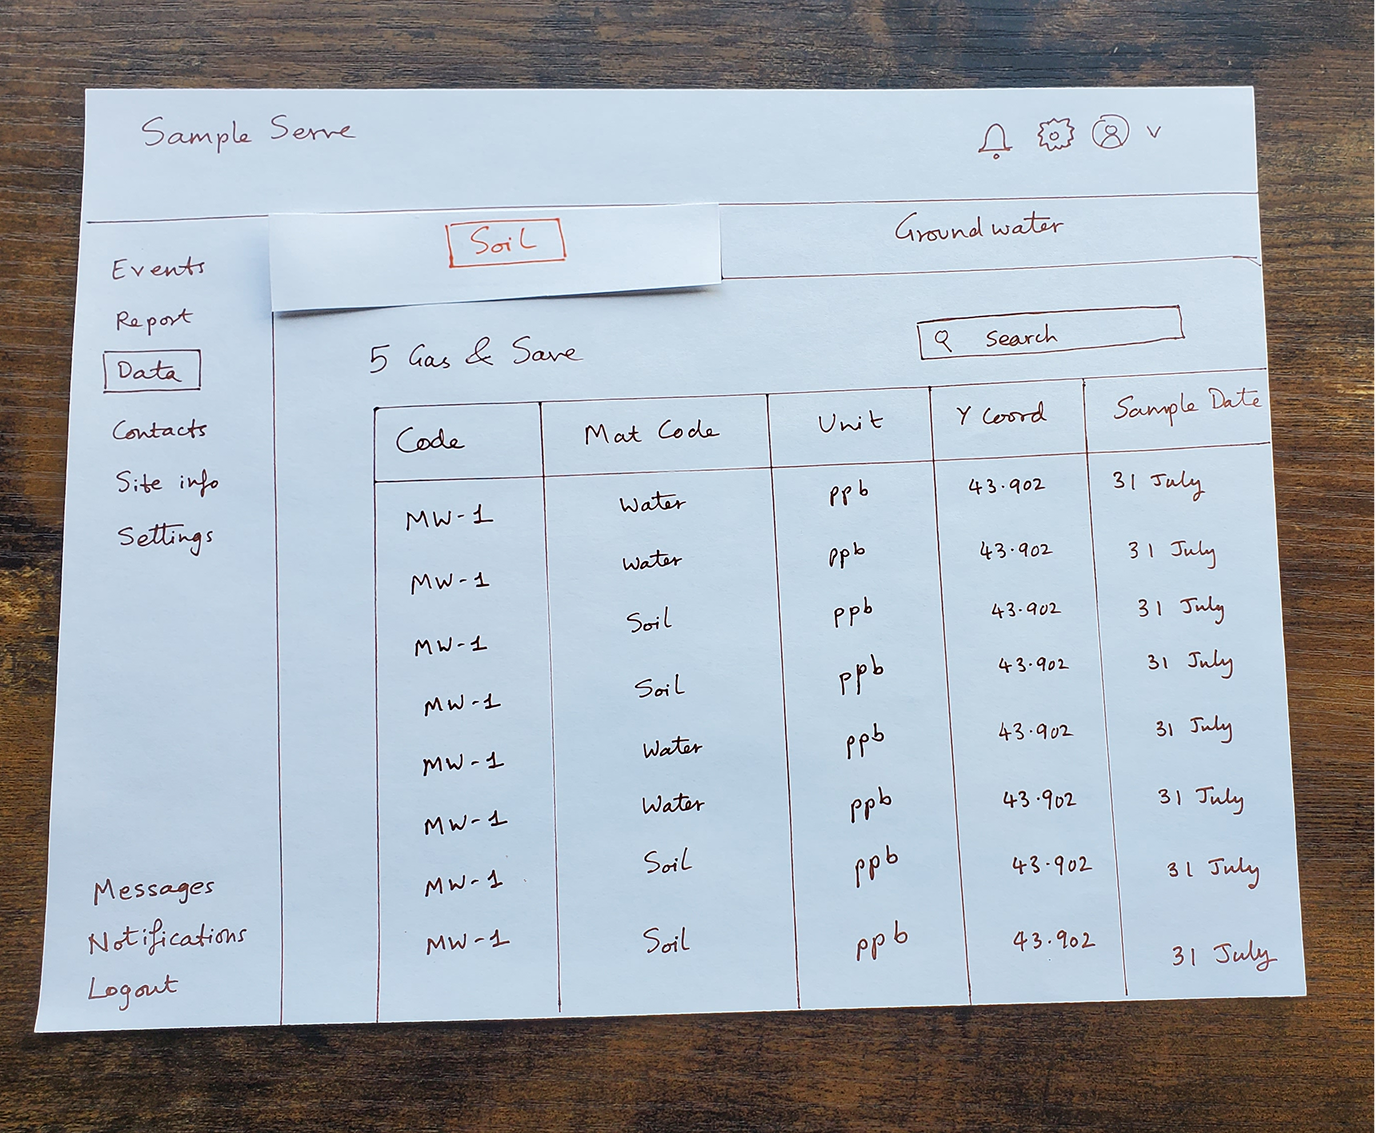 Sample Serve
v
Soil
Groundwater
Events
Report
Data
Contacts
Site info
Settings
Messages
Notifications
Logout
5 Gas & Save
Search
Code Mat Code Unit Y Coord Sample Date
MW-1 Water ppb 43.902 31 July
MW-1 Water ppb 43.902 31 July
MW-1 Soil ppb 43.902 31 July
MW-1 Soil ppb 43.902 31 July
MW-1 Water ppb 43.902 31 July
MW-1 Water ppb 43.902 31 July
MW-1 Soil ppb 43.902 31 July
MW-1 Soil ppb 43.902 31 July